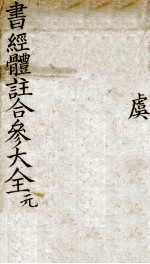 虞
書經體註合參大全元